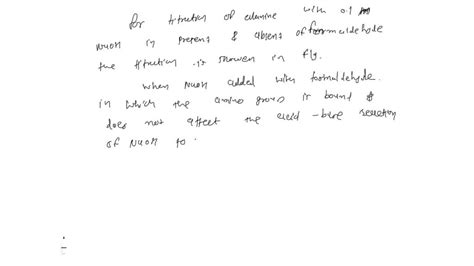 for titration of alanine with 0.1 M
NaOH in present & absent of formaldehyde
the titration is showen in fig.
when NaOH added with formaldehyde.
in which the amino group is bound &
does not affect the acid - base reaction
of NaOH to